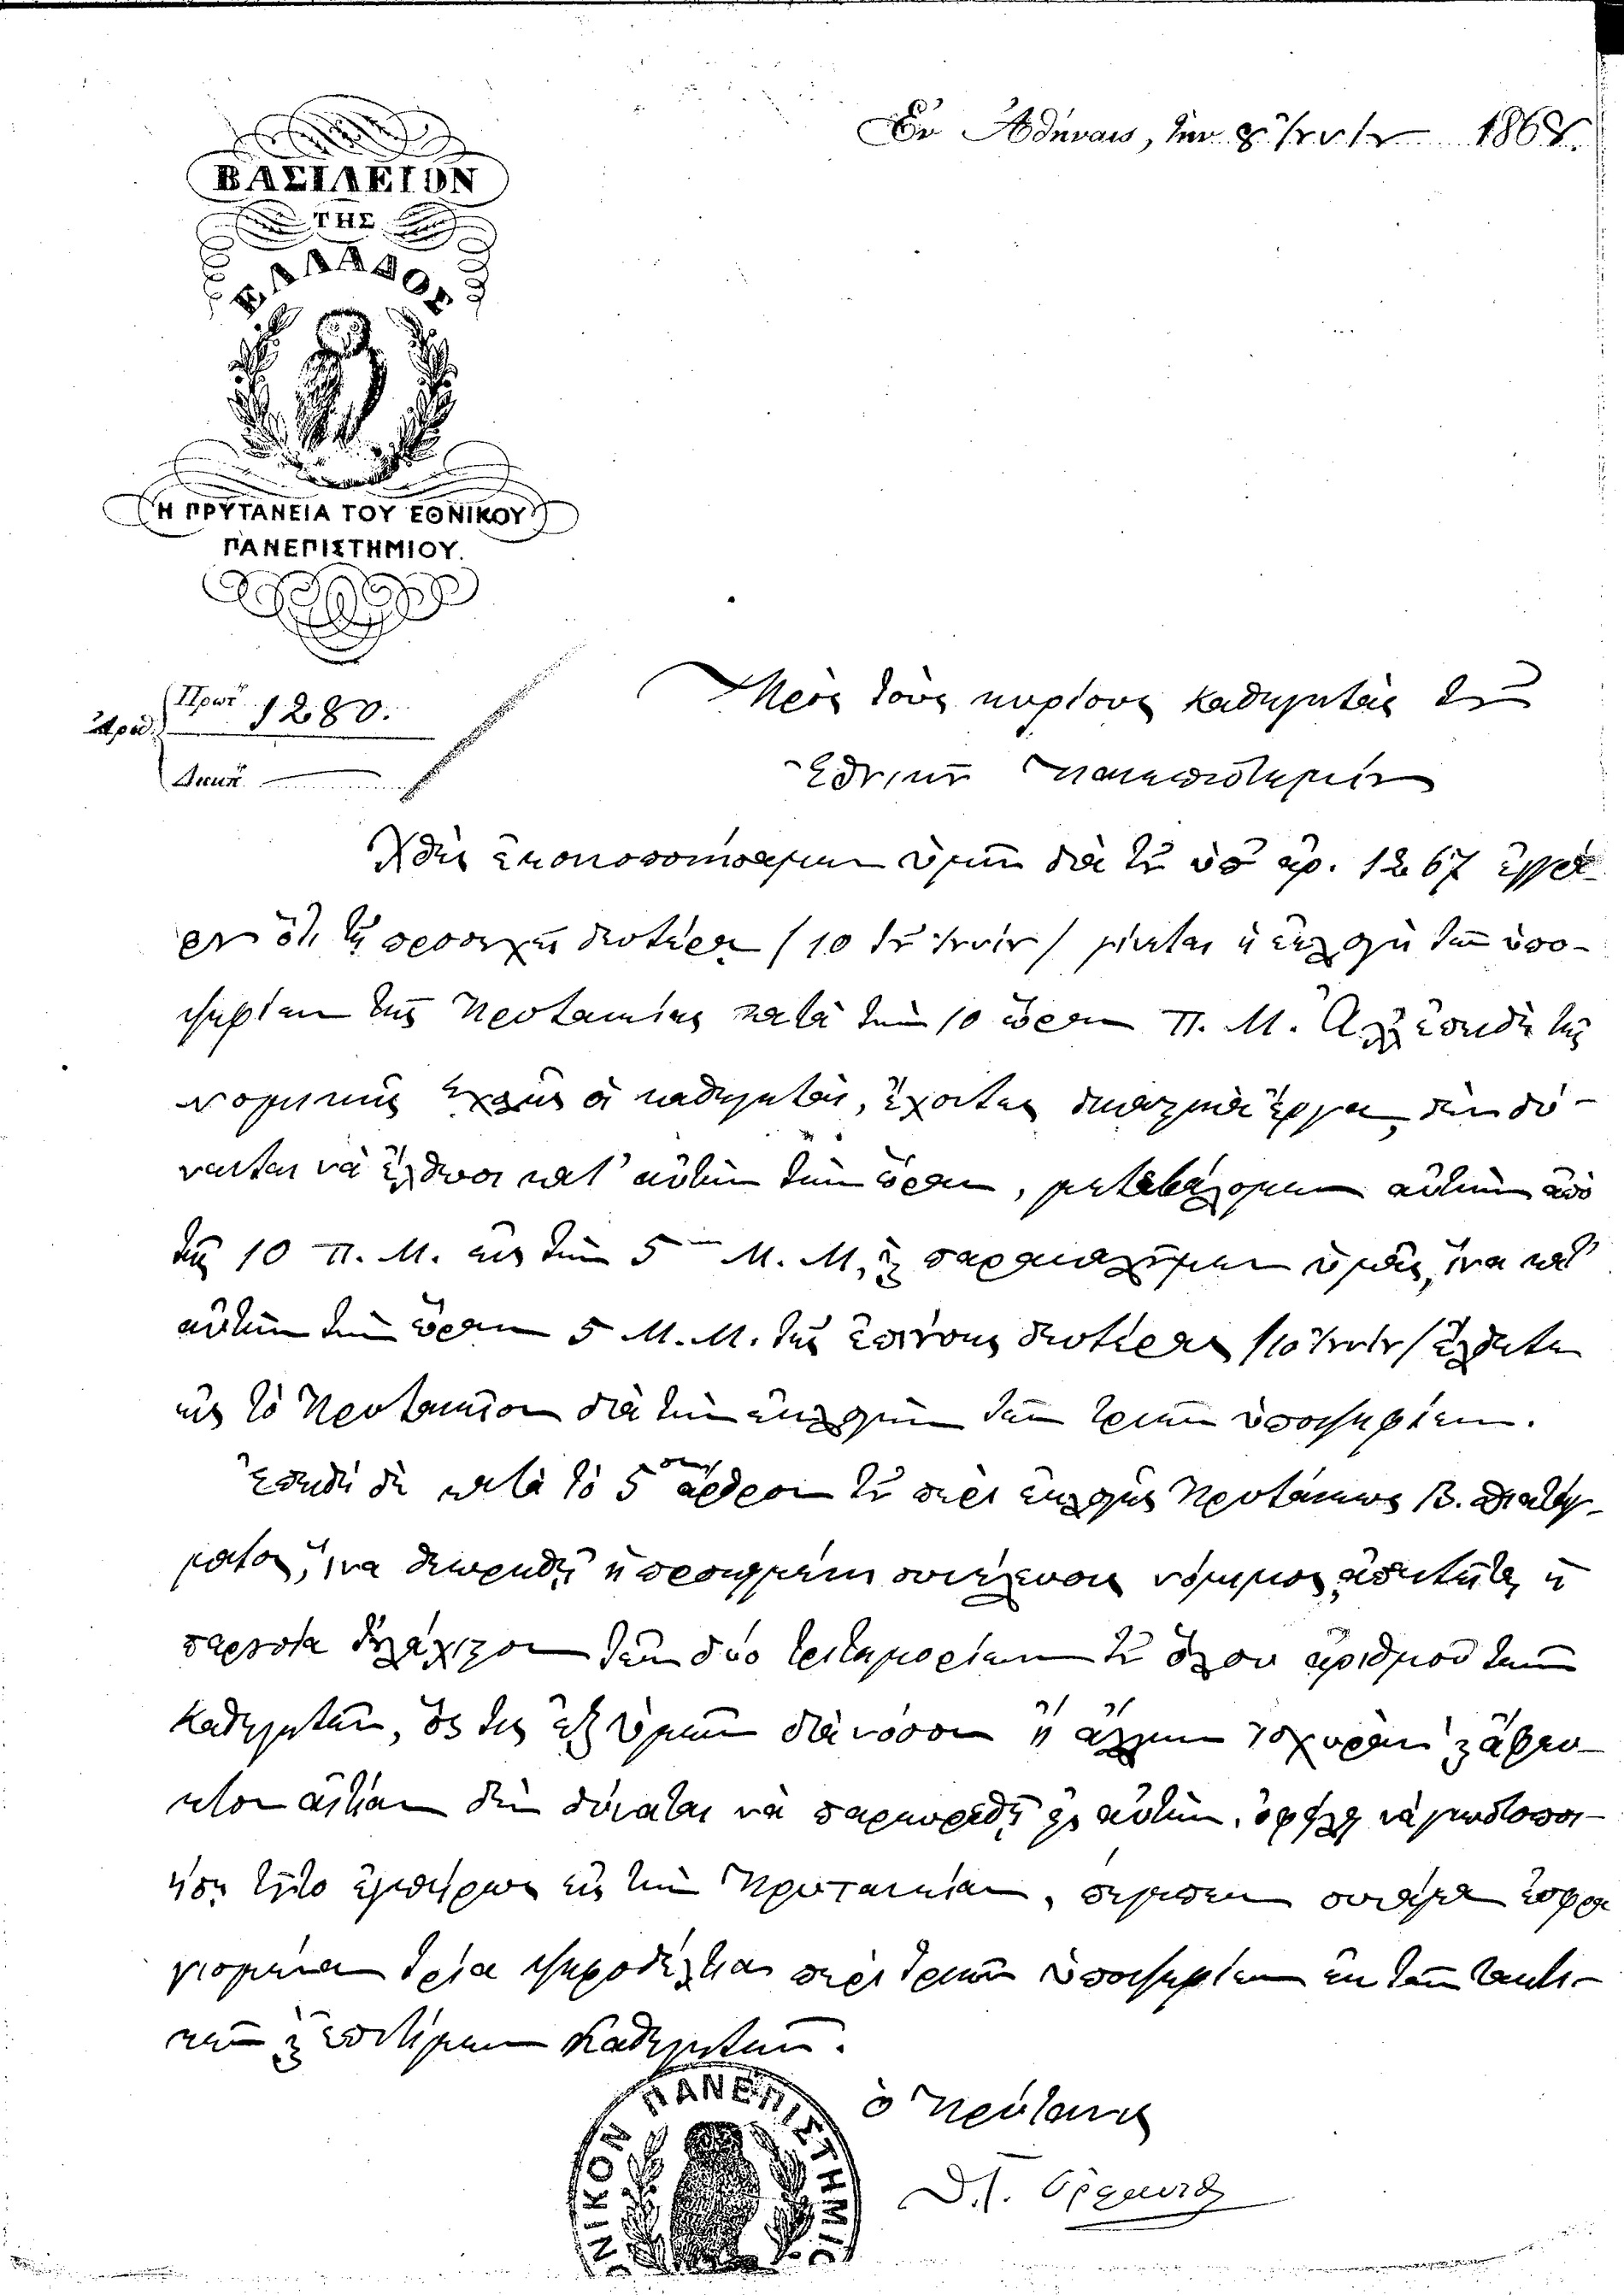 Ἐν Ἀθήναις, τὴν 8 Ἰουνίου 1868.
ΒΑΣΙΛΕΙΟΝ
ΤΗΣ
ΕΛΛΑΔΟΣ
Η ΠΡΥΤΑΝΕΙΑ ΤΟΥ ΕΘΝΙΚΟΥ
ΠΑΝΕΠΙΣΤΗΜΙΟΥ.
Ἀριθ. Πρωτ. 1280.
Διεκπ.
Πρὸς τοὺς κυρίους καθηγητὰς τοῦ
Ἐθνικοῦ Πανεπιστημίου
Χθὲς ἐκοινοποιήσαμεν ὑμῖν διὰ τοῦ ὑπ' ἀρ. 1267 ἐγγρά-
φου ὅτι τῇ προσεχεῖ δευτέρᾳ /10 τοῦ Ἰουνίου/ γίνεται ἡ ἐκλογὴ τῶν ὑπο-
ψηφίων τῆς Πρυτανείας κατὰ τὴν 10 ὥραν Π. Μ. Ἀλλ' ἐπειδὴ τῆς
νομικῆς σχολῆς οἱ καθηγηταὶ, ἔχοντες δικαστικὰ ἔργα, δὲν δύ-
νανται νὰ ἔλθωσι κατ' αὐτὴν τὴν ὥραν, μεταβάλλομεν αὐτὴν ἀπὸ
τῆς 10 Π. Μ. εἰς τὴν 5ην Μ. Μ, καὶ παρακαλοῦμεν ὑμᾶς, ἵνα κατ'
αὐτὴν τὴν ὥραν 5 Μ. Μ. τῆς ἐπιούσης δευτέρας /10 Ἰουνίου/ ἔλθητε
εἰς τὸ Πρυτανεῖον διὰ τὴν ἐκλογὴν τῶν τριῶν ὑποψηφίων.
Ἐπειδὴ δὲ κατὰ τὸ 5ον ἄρθρον τοῦ περὶ ἐκλογῆς Πρυτάνεως Β. διατάγ-
ματος, ἵνα θεωρηθῇ ἡ προκειμένη συνέλευσις νόμιμος, ἀπαιτεῖται ἡ
παρουσία τοὐλάχιστον τῶν δύο τριτημορίων τοῦ ὅλου ἀριθμοῦ τῶν
καθηγητῶν, ὅστις ἐξ ὑμῶν διὰ νόσον ἢ ἄλλην ἰσχυρὰν καὶ ἄφευ-
κτον αἰτίαν δὲν δύναται νὰ παρευρεθῇ εἰς αὐτὴν, ὀφείλει νὰ γνωστοποι-
ήσῃ τοῦτο ἐγγράφως εἰς τὴν Πρυτανείαν, πέμπων συνάμα ἐσφρα
γισμένα τρία ψηφοδέλτια περὶ τριῶν ὑποψηφίων ἐκ τῶν τακτι-
κῶν καὶ ἐπιτίμων Καθηγητῶν.
ὁ Πρύτανις
Θ. Γ. Ὀρφανίδης
ΝΙΚΟΝ ΠΑΝΕΠΙΣΤΗΜΙΟ